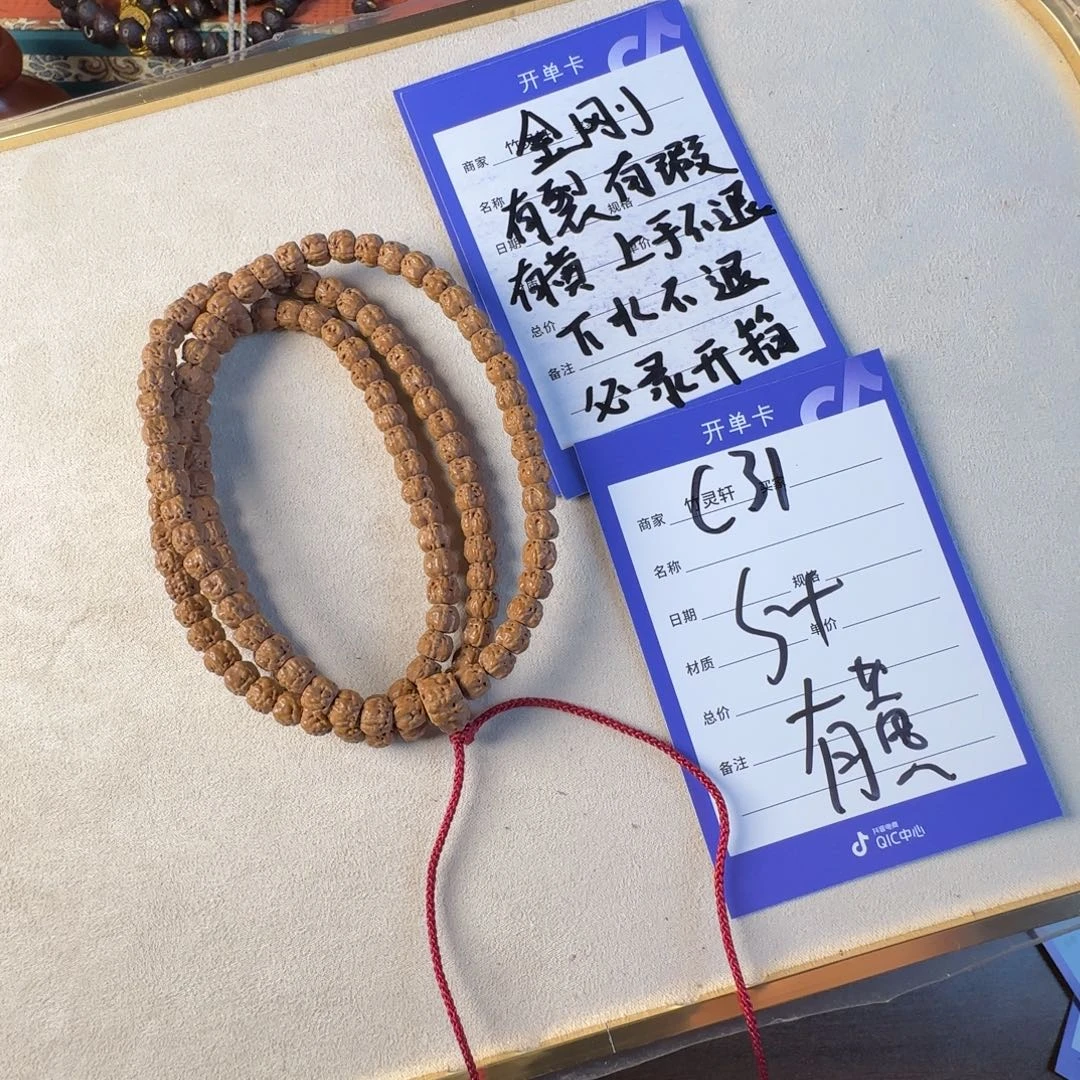 开单卡
金刚
商家 竹灵轩
有裂 有瑕
名称 规格
有横 上手不退
日期 单价
下水不退
总价
必录开箱
备注
开单卡
C31
商家 竹灵轩 买家
名称
日期 规格
材质 单价
总价
有
备注
抖音电商
QIC中心